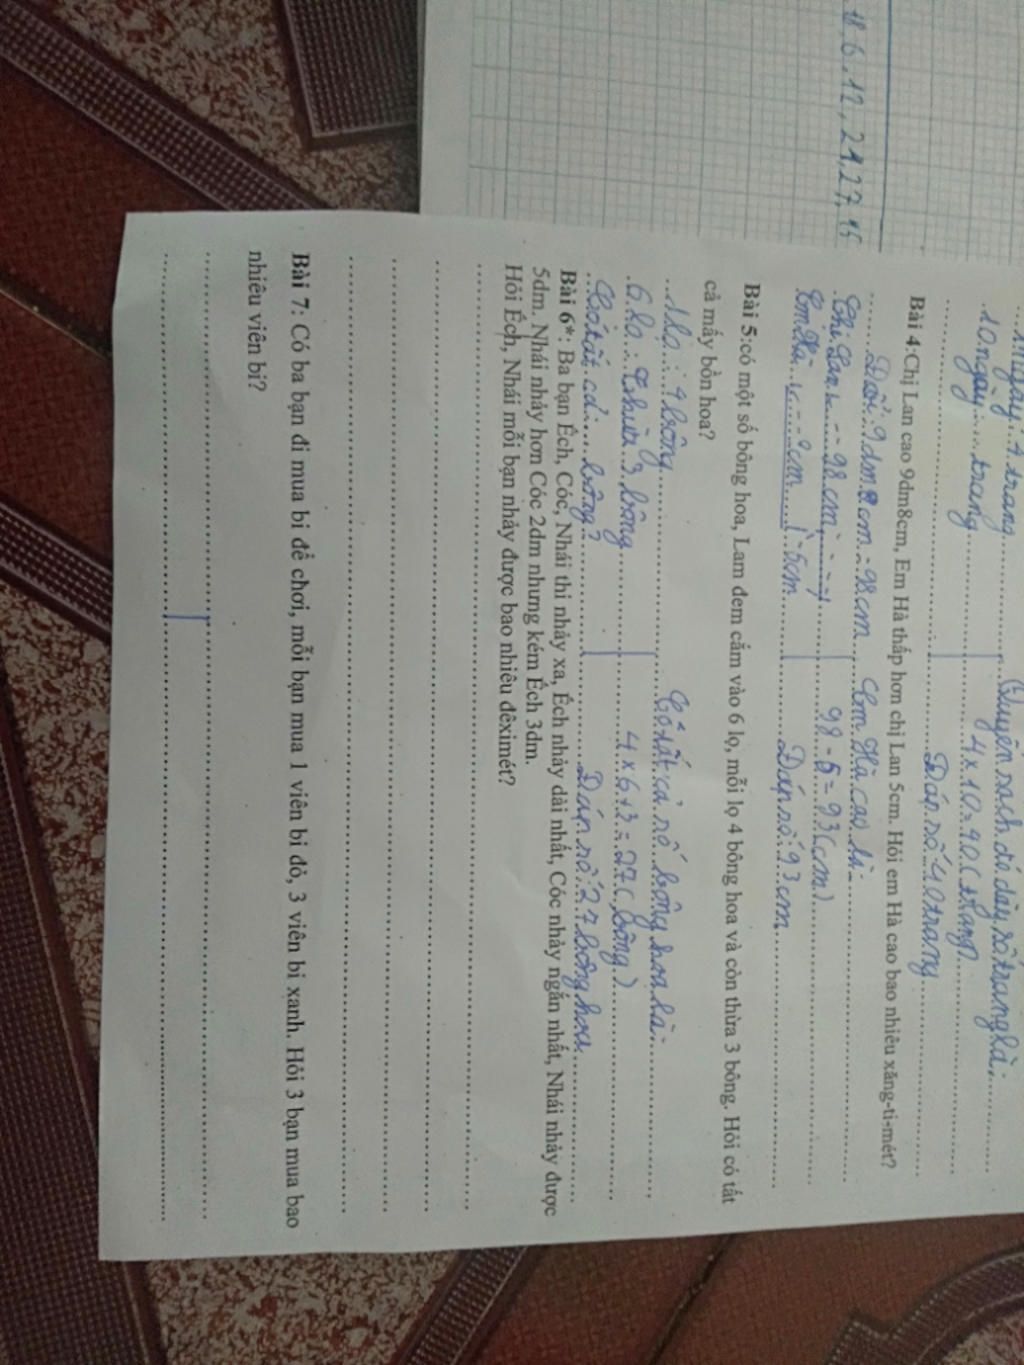 18, 6, 12, 21, 27, 45
1 ngày: 4 trang
10 ngày.....trang
Quyển sách đó dày số trang là:
4 x 10 = 40 (trang)
Đáp số: 40 trang
Bài 4:Chị Lan cao 9dm8cm, Em Hà thấp hơn chị Lan 5cm. Hỏi em Hà cao bao nhiêu xăng-ti-mét?
Đổi: 9dm8cm = 98cm
Chị Lan 98cm
Em Hà ?cm 5cm
Em Hà cao là:
98 - 5 = 93 (cm)
Đáp số: 93cm
Bài 5:có một số bông hoa, Lam đem cắm vào 6 lọ, mỗi lọ 4 bông hoa và còn thừa 3 bông. Hỏi có tất
cả mấy bồn hoa?
1 lọ: 4 bông
6 lọ: thừa 3 bông
Có tất cả:....bông?
Có tất cả số bông hoa là:
4 x 6 + 3 = 27 (bông)
Đáp số: 27 bông hoa
Bài 6*: Ba bạn Ếch, Cóc, Nhái thi nhảy xa, Ếch nhảy dài nhất, Cóc nhảy ngắn nhất, Nhái nhảy được
5dm. Nhái nhảy hơn Cóc 2dm nhưng kém Ếch 3dm.
Hỏi Ếch, Nhái mỗi bạn nhảy được bao nhiêu đêximét?
Bài 7: Có ba bạn đi mua bi để chơi, mỗi bạn mua 1 viên bi đỏ, 3 viên bi xanh. Hỏi 3 bạn mua bao
nhiêu viên bi?